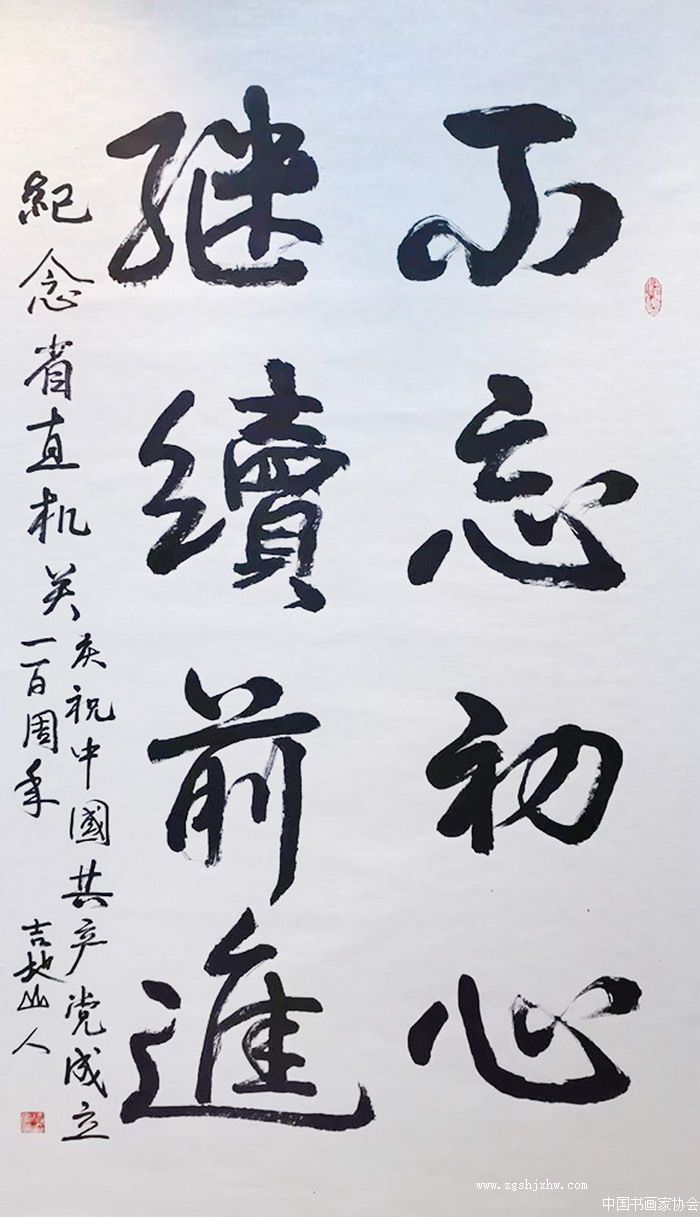 不忘初心
继續前進
紀念省直机关庆祝中國共产党成立
一百周年
吉地山人
www.zgshjxhw.com
中国书画家协会